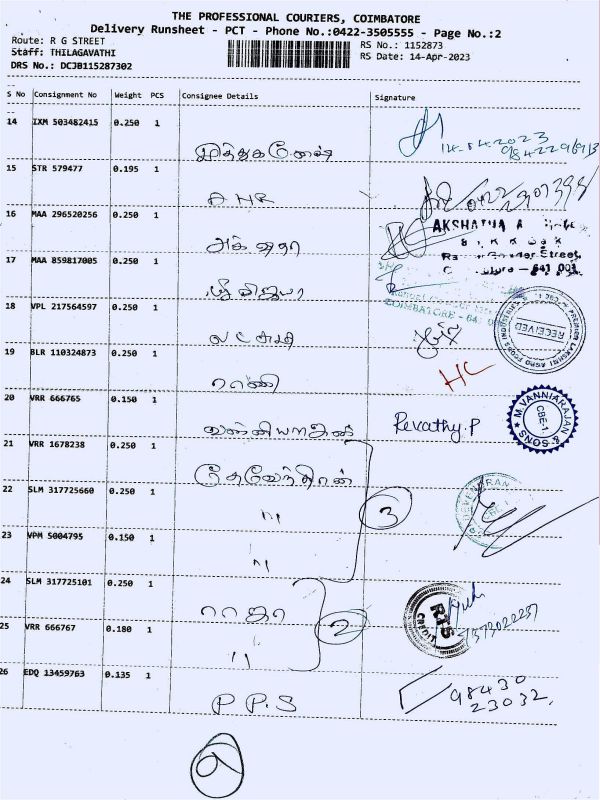 THE PROFESSIONAL COURIERS, COIMBATORE
Delivery Runsheet - PCT - Phone No.:0422-3505555 - Page No.:2
Route: R G STREET
RS No.: 1152873
Staff: THILAGAVATHI
RS Date: 14-Apr-2023
DRS No.: DCJB115287302
S No Consignment No Weight PCS Consignee Details Signature
14 IXM 503482415 0.250 1
14-04-2023
முத்துகணேஷ்
15 STR 579477 0.195 1
AHR
16 MAA 296520256 0.250 1
AKSHATHA
அக்ஷதா
641 001
17 MAA 859817005 0.250 1
ஸ்ரீ விஜயா
COIMBATORE - 641
RECEIVED
18 VPL 217564597 0.250 1
லட்சுமி
19 BLR 110324873 0.250 1
HC
ராணி
20 VRR 666765 0.150 1
வன்னியராஜன்
Revathy.P
M.VANNIARAJAN & SONS
CBE-1
21 VRR 1678238 0.250 1
தேவேந்திரன்
22 SLM 317725660 0.250 1
"
3
DEVENDRAN
CBE-1
23 VPM 5004795 0.150 1
"
24 SLM 317725101 0.250 1
ராஜா
2
RTS
CREDIT
25 VRR 666767 0.180 1
"
26 EDQ 13459763 0.135 1
P P.S
98430
23032